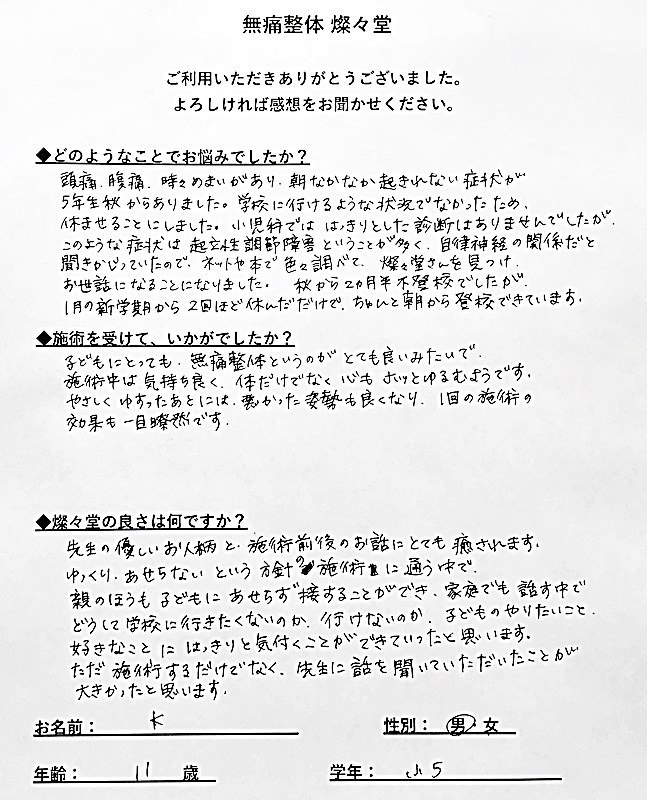 無痛整体 燦々堂
ご利用いただきありがとうございました。
よろしければ感想をお聞かせください。
◆どのようなことでお悩みでしたか？
頭痛、腹痛、時々めまいがあり、朝なかなか起きれない症状が
5年生秋からありました。学校に行けるような状況でなかったため、
休ませることにしました。小児科では はっきりとした診断はありませんでしたが、
このような症状は 起立性調節障害ということが多く、自律神経の関係だと
聞きかじっていたので、ネットや本で色々調べて、燦々堂さんを見つけ、
お世話になることになりました。 秋から2ヵ月半不登校でしたが、
1月の新学期から2回ほど休んだだけで、ちゃんと朝から登校できています。
◆施術を受けて、いかがでしたか？
子どもにとっても、無痛整体というのがとても良いみたいで、
施術中は気持ち良く、体だけでなく心もホッとゆるむようです。
やさしくゆすったあとには、悪かった姿勢も良くなり、1回の施術の
効果も一目瞭然です。
◆燦々堂の良さは何ですか？
先生の優しいお人柄と、施術前後のお話にとても癒されます。
ゆっくり、あせらないという方針の施術に通う中で、
親のほうも子どもにあせらず接することができ、家庭でも話す中で
どうして学校に行きたくないのか、行けないのか、子どものやりたいこと、
好きなことにはっきりと気付くことができていったと思います。
ただ施術するだけでなく、先生に話を聞いていただいたことが
大きかったと思います。
お名前： K 性別： 男・女
年齢： 11 歳 学年： 小5